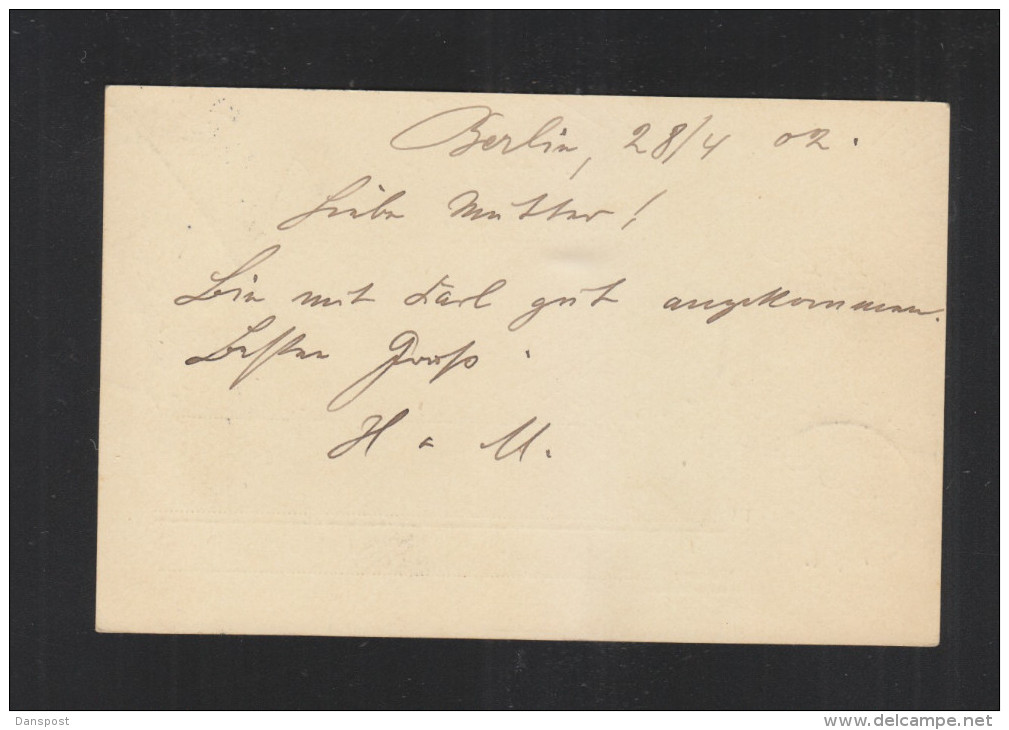 Berlin, 28/4 02.
Liebe Mutter!
Bin mit Karl gut angekommen.
Besten Gruß.
H u M.
Danspost
www.delcampe.net